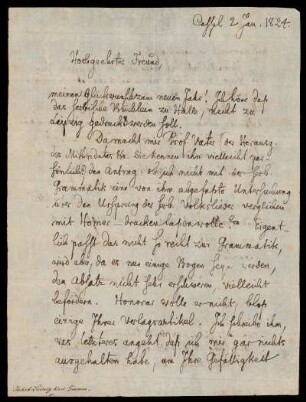 Cassel 2 Jan. 1824.
Hochgeehrter Freund,
meinen Glückwunsch zum neuen Jahr! Ich höre daß
das serbische Büchlein zu Halle, nicht zu
Leipzig gedruckt werden soll.
Da macht mir Prof Vater (der Herausg.
des Mithridates Sie kennen ihn vielleicht per
sönlich) den Antrag, ob ich nicht mit der serb.
Grammatik eine von ihm abgefaßte Untersuchung
über den Ursprung der serb Volkslieder verglichen
mit Homer drucken lassen wolle. Eigent
lich paßt das nicht so recht zur Grammatik
wird aber, da es nur einige Bogen seyn werden,
den Absatz nicht sehr erschweren vielleicht
befördern. Honorar wolle er nicht, blos
einige Ihrer Verlagsartikel. Ich schreibe ihm,
was letzteres angeht, daß ich mir gar nichts
ausgehalten habe, um Ihre Gefälligkeit